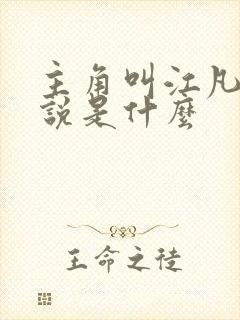 主角叫江凡
說是什麼
王命之徒